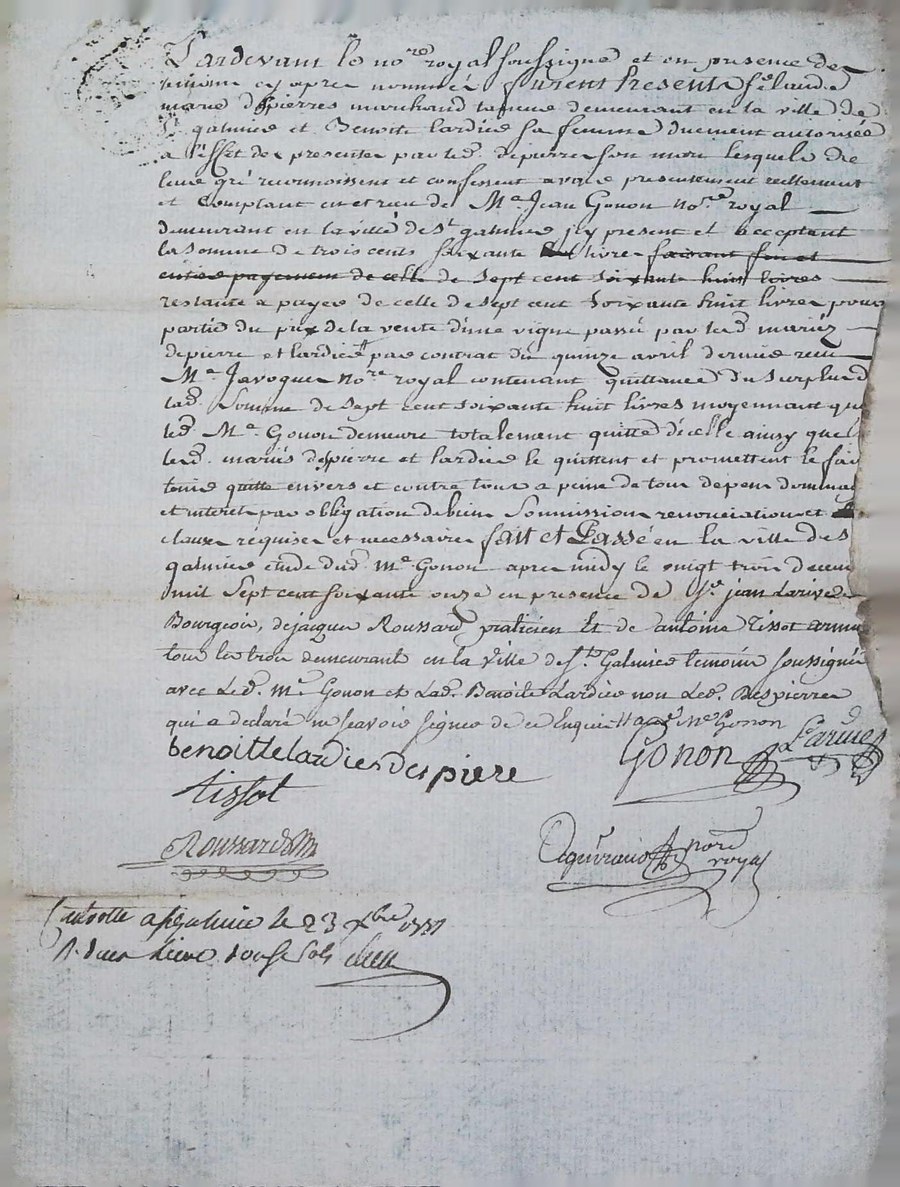 Pardevant le no.re royal soussigné et en presence des
temoins cy apres nommés furent presents sr claude
marie despierres marchand taneur demeurant en la ville de
St galmier et Benoitte lardier sa femme duement autorisée
a l'effet des presentes par led. depierre son mary lesquels de
leur gré reconnoissent et confessent avoir presentement reellement
et Comptant eu et receu de Me Jean Gonon no.re royal
demeurant en la ville de St galmier icy present et acceptant
la somme de trois cents soixante livres faisant fin et
entier payement de celle de sept cent soixante huit livres
restante a payer de celle de sept cent soixante huit livres pour
partie du prix de la vente d'une vigne passée par lesd. mariéz
depierre et lardier par contrat du quinze avril dernier receu
Me Javogues no.re royal contenant quittance du surplus d
lad. somme de sept cent soixante huit livres moyennant qu
led. Me. Gonon demeure totalement quitte d'icelle ainsy que
lesd. mariés despierre et lardier le quittent et promettent le fai
tenir quitte envers et contre tous a peine de tous depens dommag
et interet par obligation de biens soumission renonciation et
clauses réquises et necessaires fait et Passé en la ville de S
galmier etude dud. Me Gonon apres midy le vingt trois decem
mil sept cent soixante onze en presence de Sr. jean Larive
Bourgeois, de jacques Roussard praticien Et de antoine Tissot
tous les trois demeurant en la ville de St. Galmier temoins soussignés
avec led. Me Gonon et lad. Benoite Lardier non led. Despierres
qui a declaré ne scavoir signer de ce Enquis Me Gonon
benoitte lardier despiere
Gonon Larive
tissot
Roussard
no.re royal
Controllé a St Galmier le 23 Xbre 1771
R. douze sols